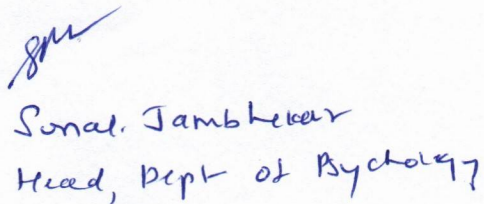 Sonal. Jambhekar
Head, Dept of Psychology